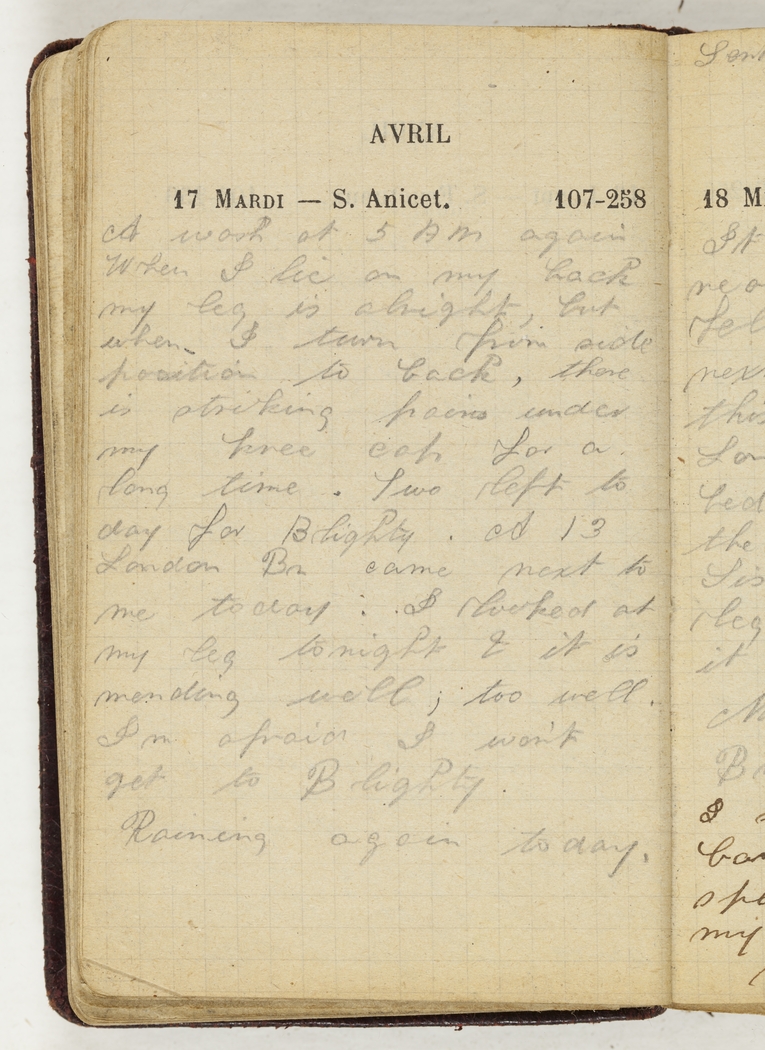 AVRIL
17 MARDI — S. Anicet. 107-258
A wash at 5 AM again
When I lie on my back
my leg is alright, but
when I turn from side
position to back, there
is striking pains under
my knee cap for a
long time. Two left to
day for Blighty. A 13
London Bn came next to
me today. I looked at
my leg tonight & it is
mending well; too well.
I'm afraid I won't
get to Blighty
Raining again today.
18 M
It
next
this
bed
the
Sis
leg
it
I
my